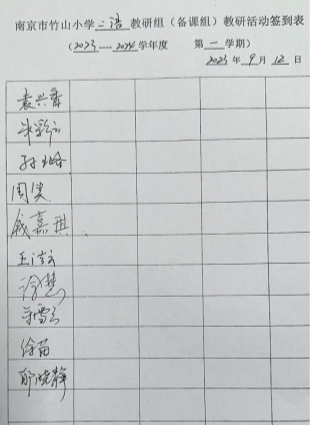 南京市竹山小学二语教研组（备课组）教研活动签到表
（2023——2024学年度 第一学期）
2023年9月12日
袁兴香
朱彩云
孙璐
周笑
钱嘉琪
徐苗
邝晓静